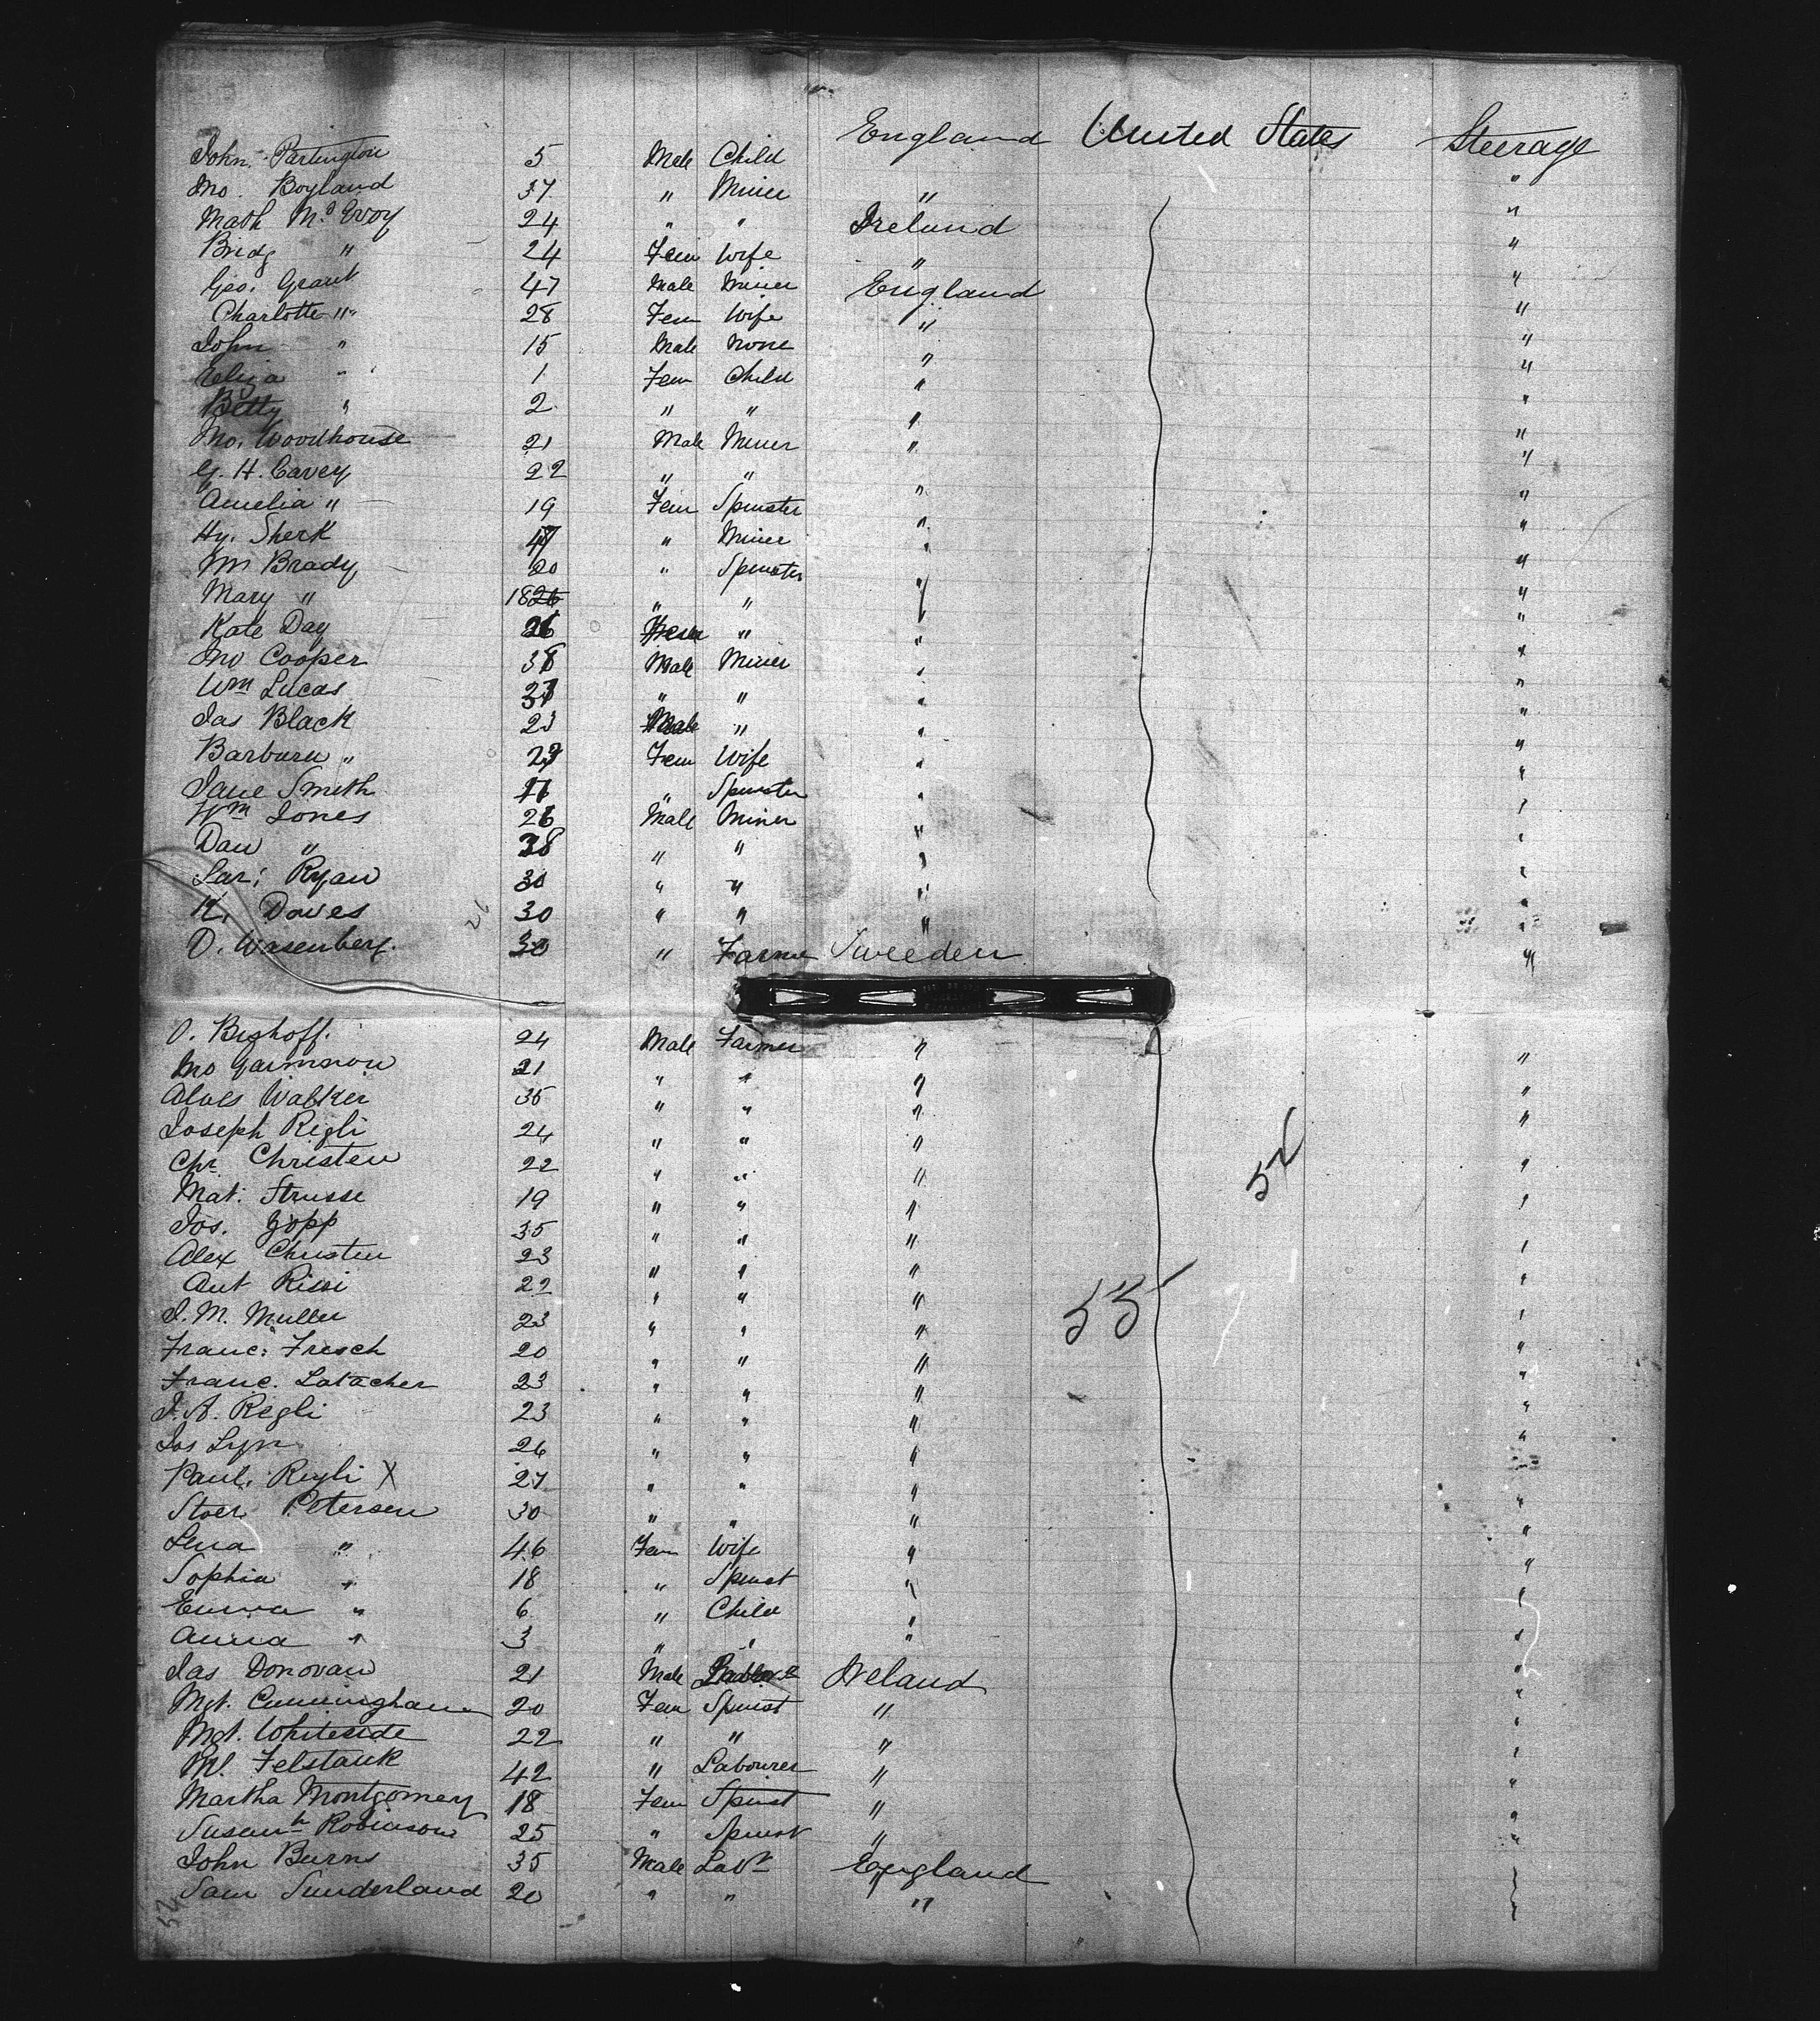 John Partington 5 Male Child England United States Steerage
Jno. Boyland 37 " Miner " "
Math McEvoy 24 " " Ireland "
Bridg " 24 Fem Wife " "
Geo. Grant 47 Male Miner England "
Charlotte " 28 Fem Wife " "
John " 15 Male None " "
Eliza " 1 Fem Child " "
Betty " 2 " " " "
Jno. Woodhouse 21 Male Miner " "
G. H. Cavey 22 " " " "
Amelia " 19 Fem Spinster " "
Hy. Sherk " Miner " "
Brady 20 " Spinster " "
Mary " 18 " " " "
Kate Day " " "
Jno Cooper 38 Male Miner " "
Wm Lucas " " " "
Jas Black 23 Male " " "
" Fem Wife " "
Jane Smith " Spinster " "
Wm Jones 26 Male Miner " "
Dan " 38 " " " "
Ryan 30 " " " "
Daves 30 " " " "
O. Wasenberg. 30 " Farmer Sweeden "
O. Bighoff. 24 Male Farmer " "
Jno 21 " " " "
Walker 35 " " " "
Joseph Regli 24 " " " "
Chr Christen 22 " " " "
Mat. Strusse 19 " " " "
Jos. Gopp 35 " " " "
Alex Christen 23 " " " "
Ant 22 " " " "
J. M. Muller 23 " " " "
Franc: Fresch 20 " " " "
Franc. Latacher 23 " " " "
J. A. Regli 23 " " " "
Jos 26 " " " "
Paul. Regli X 27 " " " "
Petersen 30 " " " "
Lena " 46 Fem Wife " "
Sophia " 18 " Spinst " "
Emma " 6 " Child " "
Anna " 3 " " " "
Jas Donovan 21 Male Ireland "
Mgt. Cunningham 20 Fem Spinst " "
Mgt. Whiteside 22 " " " "
Ml. Felstauk 42 " Labourer " "
Martha Montgomery 18 Fem Spinst " "
Susanh Robinson 25 " Spinst " "
John Burns 35 Male Labr England
Sam Sunderland 20 " " "
52
55
52